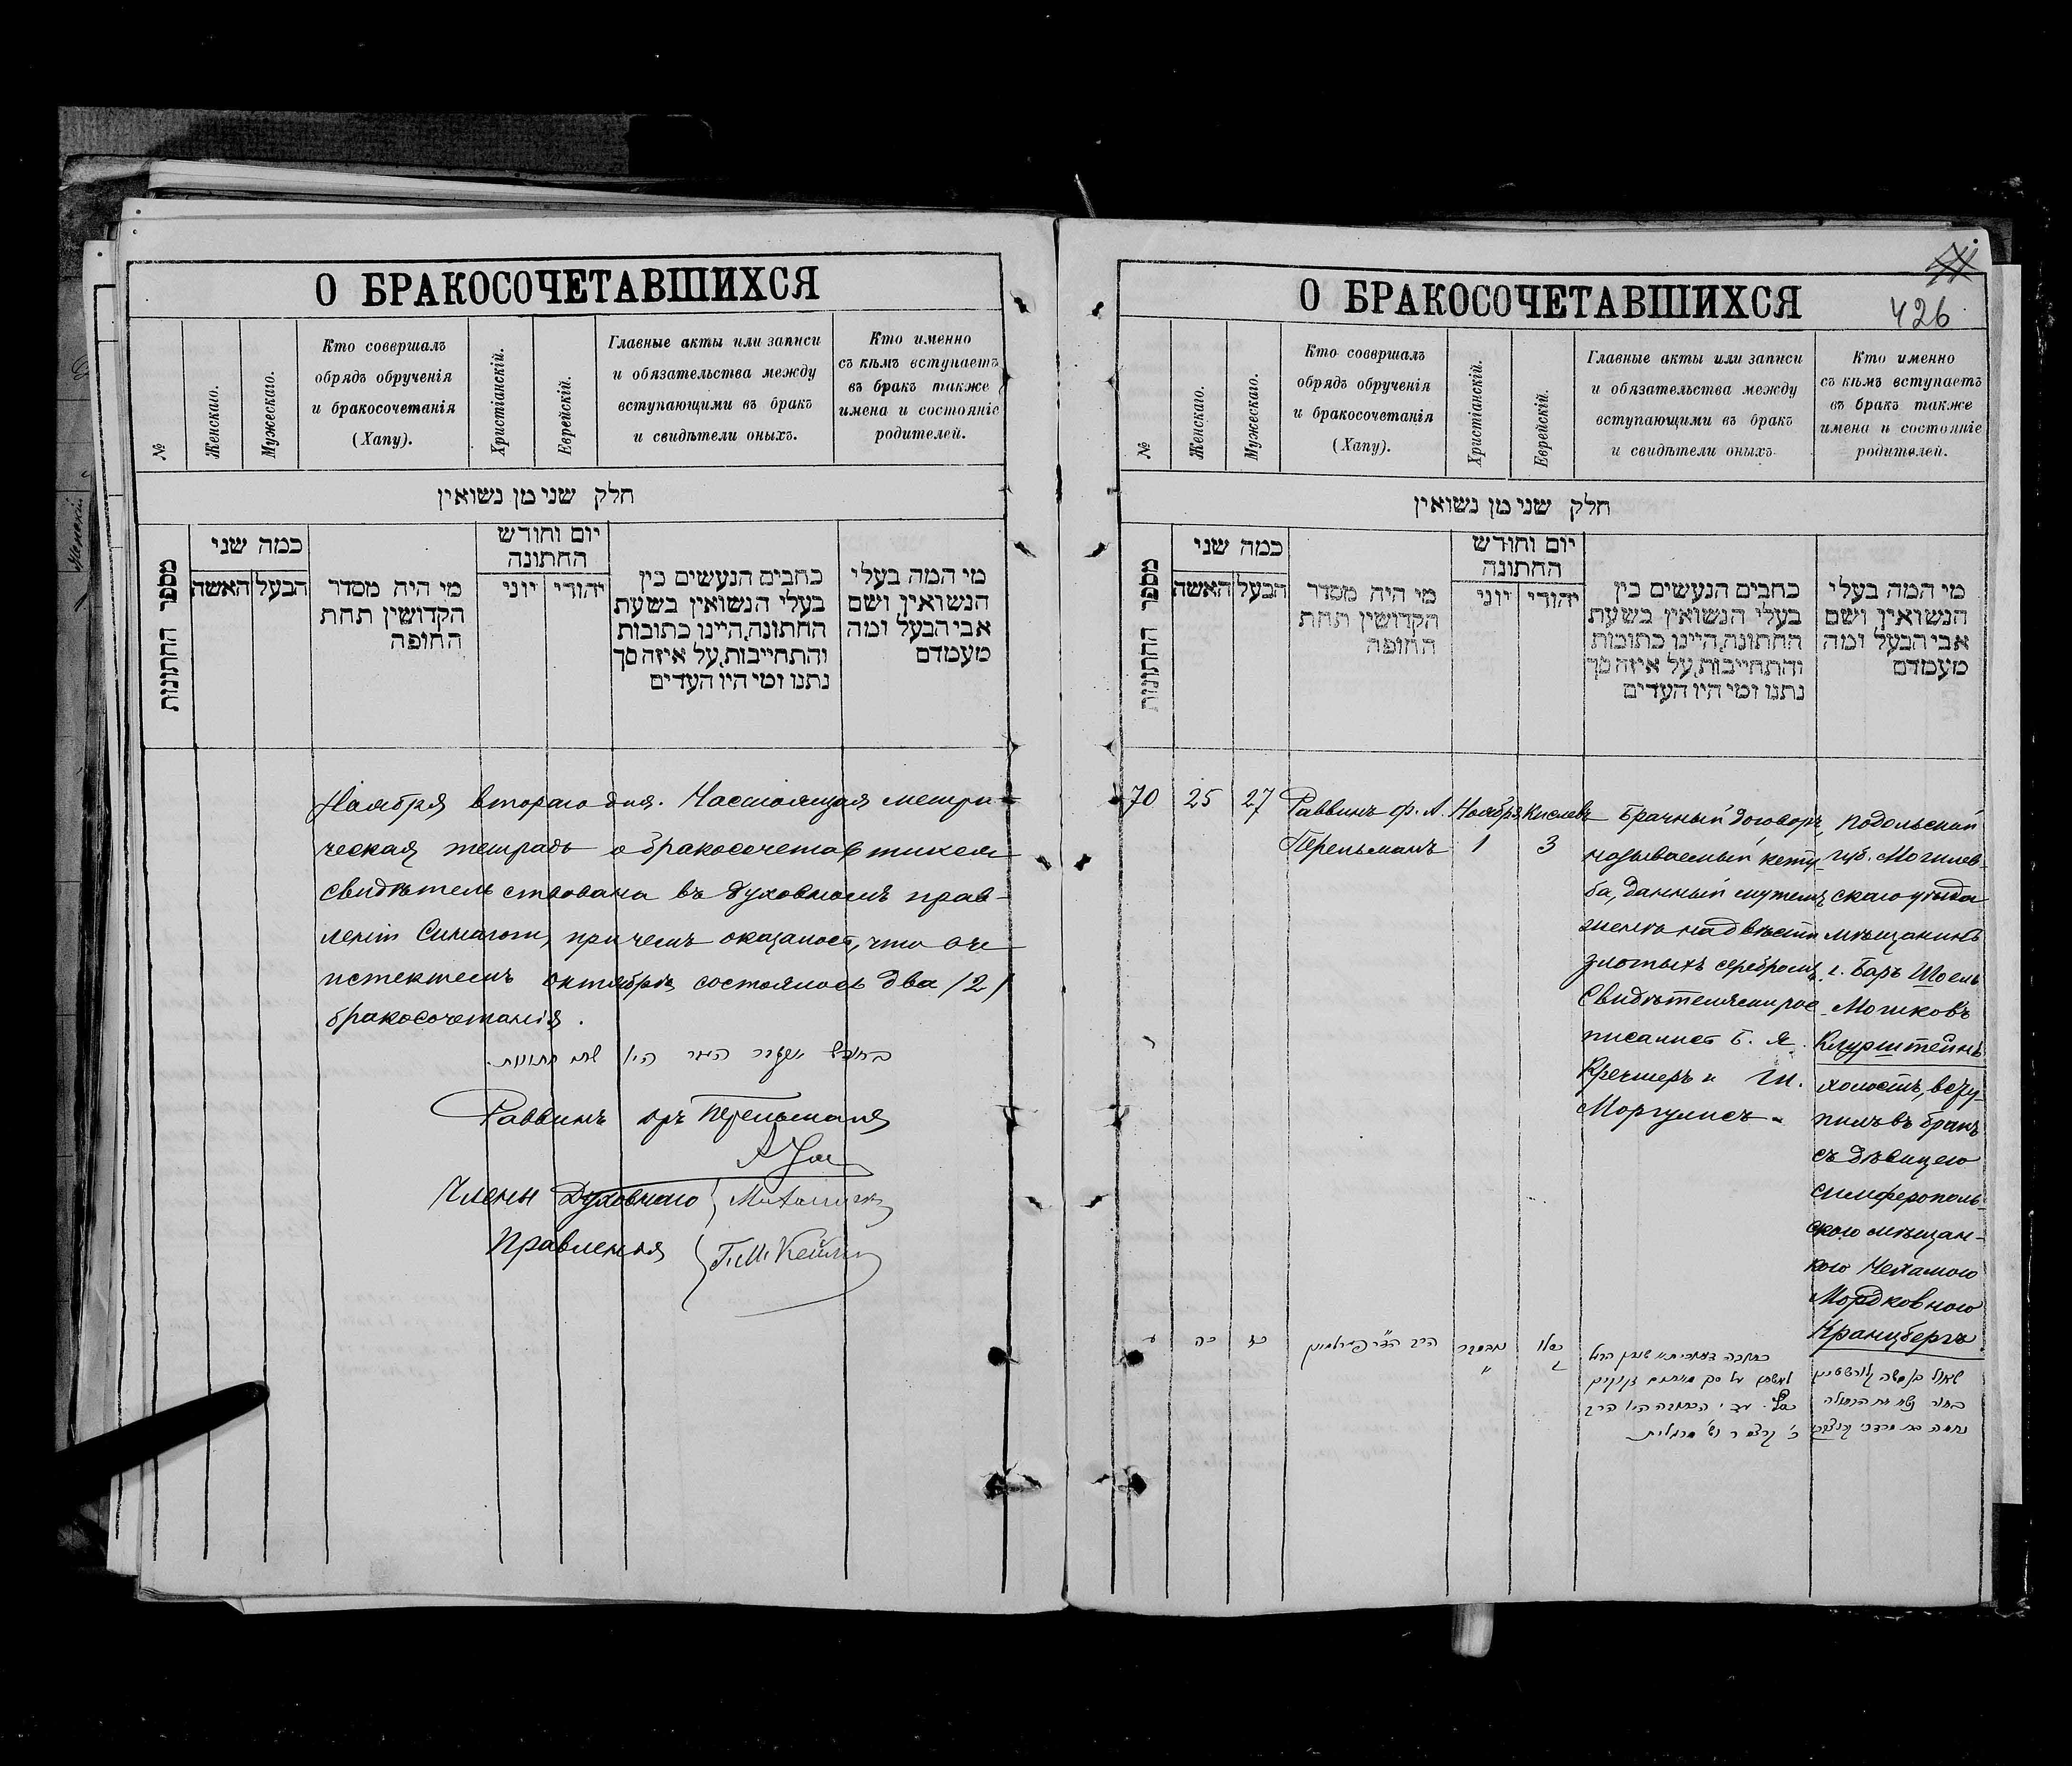 О БРАКОСОЧЕТАВШИХСЯ
№
Женскаго.
Мужескаго.
Кто совершалъ
обрядъ обрученія
и бракосочетанія
(Хапу).
Христіанскій.
Еврейскій.
Главные акты или записи
и обязательства между
вступающими въ бракъ
и свидѣтели оныхъ.
Кто именно
съ кѣмъ вступаетъ
въ бракъ также
имена и состояніе
родителей.
חלק שני מן נשואין
מספר החתונות
כמה שני
הבעל
האשה
מי היה מסדר
הקדושין תחת
החופה
יום וחודש
החתונה
יהודי
יוני
כתבים הנעשים בין
בעלי הנשואין בשעת
החתונה, היינו כתובות
והתחייבות, על איזה סך
נתנו ומי היו העדים
מי המה בעלי
הנשואין ושם
אבי הבעל ומה
מעמדם
Ноября втораго дня. Настоящая метри-
ческая тетрадь о бракосочетавшихся
свидѣтельствована въ Духовномъ прав-
леніи Синагоги, при чемъ оказалось, что въ
истекшемъ октябрѣ состоялось два /2/
бракосочетанія.
היו שתי חתונות.
Раввинъ дръ Перельманъ
Члены Духовнаго
Правленія
О БРАКОСОЧЕТАВШИХСЯ
426
№
Женскаго.
Мужескаго.
Кто совершалъ
обрядъ обрученія
и бракосочетанія
(Хапу).
Христіанскій.
Еврейскій.
Главные акты или записи
и обязательства между
вступающими въ бракъ
и свидѣтели оныхъ.
Кто именно
съ кѣмъ вступаетъ
въ бракъ также
имена и состояніе
родителей.
חלק שני מן נשואין
מספר החתונות
כמה שני
הבעל
האשה
מי היה מסדר
הקדושין תחת
החופה
יום וחודש
החתונה
יהודי
יוני
כתבים הנעשים בין
בעלי הנשואין בשעת
החתונה, היינו כתובות
והתחייבות, על איזה סך
נתנו ומי היו העדים
מי המה בעלי
הנשואין ושם
אבי הבעל ומה
מעמדם
70
25
27
Раввинъ Ф. А.
Перельманъ
Ноября
1
Кислевъ
3
Брачный договоръ,
называемый кету-
ба, данный мужемъ
женѣ на двѣсти
злотыхъ серебромъ.
Свидѣтелями рос-
писались Б. Я.
Кречмеръ и Ш.
Моргулисъ.
Подольской
губ. Могилев-
скаго уѣзда
мѣщанинъ
г. Баръ Шоель
Мошковъ
Клурштейнъ
холостъ, всту-
пилъ въ бракъ
съ дѣвицею
симферополь-
скою мѣщан-
кою Нехамою
Мордковною
Кранцбергъ
ע
כה
כז
הרב הד״ר פערלמאן
נאוועמבר
כסלו
שאול בן משה
נחמה בת מרדכי